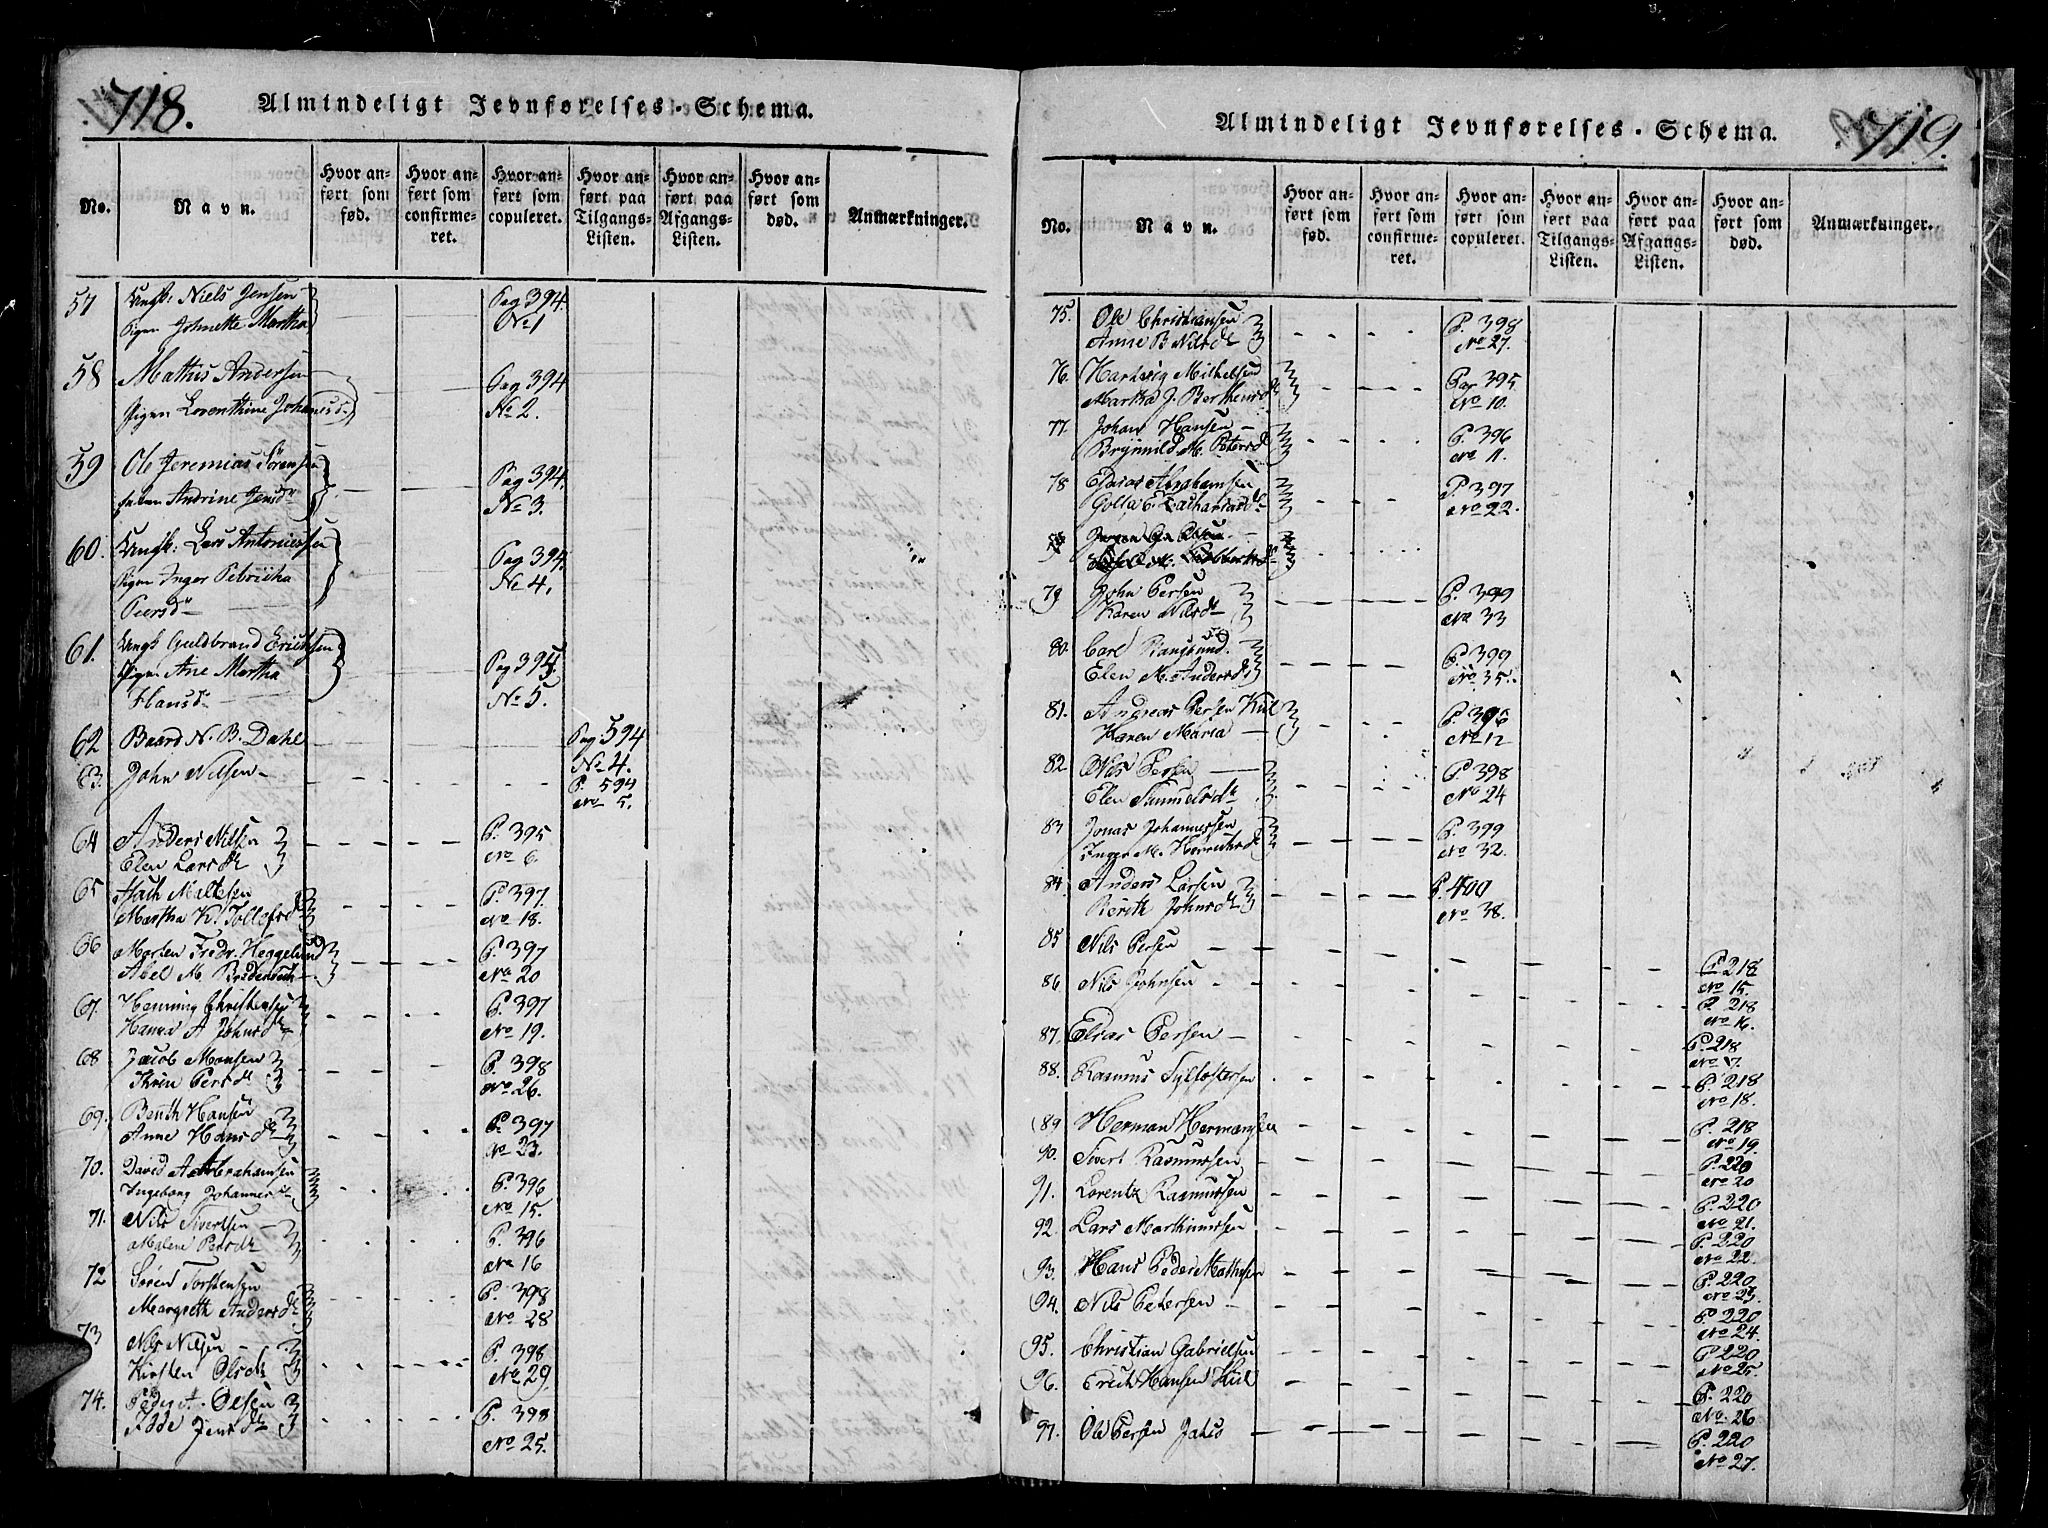 718.
Almindeligt Jevnførelses-Schema.
No.
Navn.
Hvor anført som fød.
Hvor anført som confirmeret.
Hvor anført som copuleret.
Hvor anført paa Tilgangs-Listen.
Hvor anført paa Afgangs-Listen.
Hvor anført som død.
Anmærkninger.
57 Ungk: Niels Jensen Pag 394.
Pigen Johnette Martha No 1
58 Mathis Andersen Pag 394
Pigen Lorenthine Johansd. No 2.
59 Ole Jeremias Sørensen Pag 394.
Andrine Jensdr No 3.
60. Ungk: Lars Antoniussen Pag 394.
Pigen Inger Petricha No 4.
Peersdr
61. Ungk Guldbrand Erichsen Pag 395.
Pigen Ane Martha
Hansdr No 5.
62 Baard N. B. Dahl Pag 594
No 4.
63. John Nilsen P. 594
No 5.
64 Anders Nilsen P. 395
Elen Larsdr No 6.
65 Isach Maltesen P. 397.
Martha K. Tollefsdr No 18.
66 Morten Fredr. Heggelund P. 397
Abel M. No 20
67. Henning Christensen P. 397
Hanna A Johnsdr No 19.
68 Jacob Monsen P. 398
Persdr No 26.
69. Benth Hansen P. 397
Anne Hansdr No 23.
70. David A Abrahamsen P. 396
Ingeborg Johannesdr No 15.
71. Nils Sivertsen P. 396
Malene Persdr No 16
72 Søren Torstensen P. 398
Margreth Andersdr No 28
73 Nils Nilsen P. 398
Kirsten Olsdr No 29.
74. Peder A. Olsen P. 398
Jensdr No 25.
719.
Almindeligt Jevnførelses-Schema.
No.
Navn.
Hvor anført som fød.
Hvor anført som confirmeret.
Hvor anført som copuleret.
Hvor anført paa Tilgangs-Listen.
Hvor anført paa Afgangs-Listen.
Hvor anført som død.
Anmærkninger.
75. Ole Christiansen P. 398
Anne B Nilsdr No 27.
76. Hartvig Michelsen Pag 395
Martha J. No 10.
77. Johan Hansen P. 396
Brynnild M. Petersdr No 11.
78 Elias Abrahamsen P. 397
Golla E. Zachariasdr No 22.
79 John Persen P. 399
Karen Nilsdr No 33
80. Carl P. 399
Elen M. Andersdr No 35.
81. Andreas Persen Kiil P. 396
Karen Maria No 12
82 Nils Persen P. 398
Elen Samuelsdr No 24
83 Jonas Johannessen P. 399
Inger M. Henrichsdr No 32.
84. Anders Larsen P. 400
Berith Johnsdr No 38.
85 Nils Persen P. 218
No 15.
86. Nils Johnsen P. 218
No 16.
87. Elias Persen P. 218
No 17.
88. Rasmus Sylfestersen P. 218
No 18.
89 Herman Hermansen P. 218
No 19.
90. Sivert Rasmussen P. 220
No 20
91. Lorentz Rasmussen P. 220
No 21.
92 Lars Marthinussen P. 220
No 22.
93. Hans Peder Mathisen P. 220
No 23.
94. Nils Petersen P. 220
No 24.
95. Christian Gabrielsen P. 220
No 25.
96. Erich Hansen Kiil P. 220
No 26
97. Ole Persen P. 220
No 27.